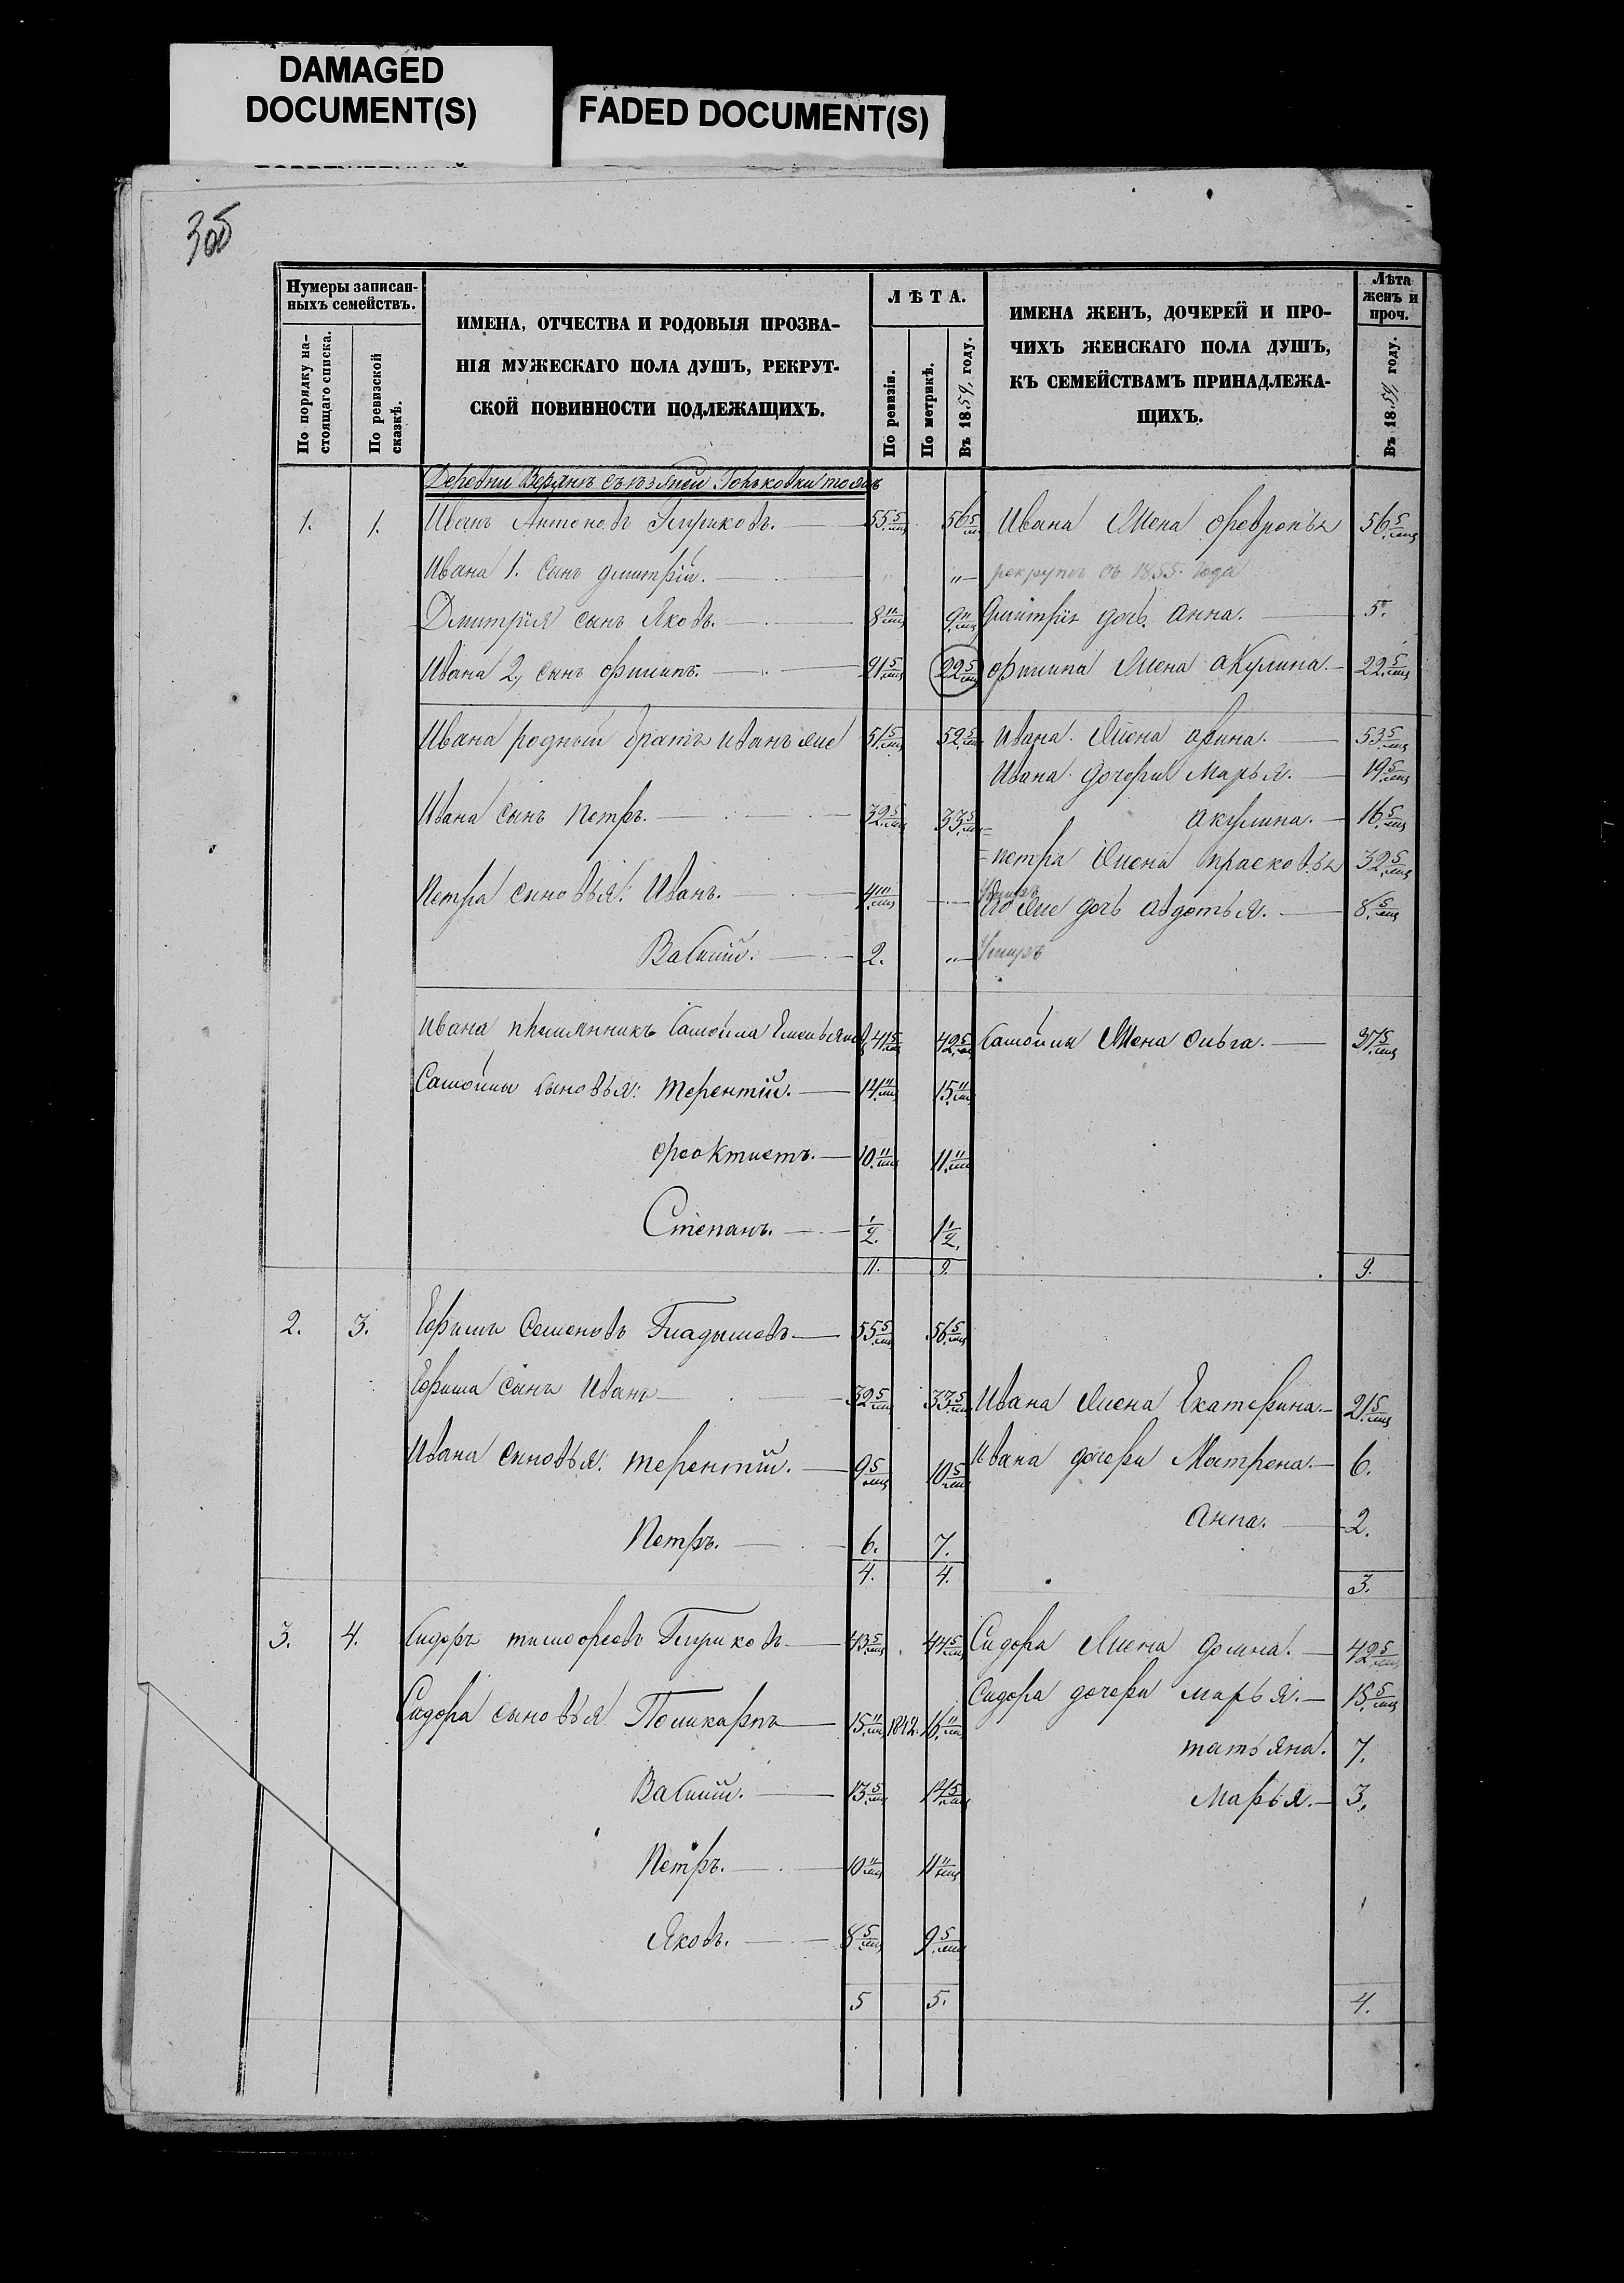 DAMAGED
DOCUMENT(S)
FADED DOCUMENT(S)
Нумеры записан-
ныхъ семействъ.
По порядку на-
стоящаго списка.
По ревизской
сказкѣ.
ИМЕНА, ОТЧЕСТВА И РОДОВЫЯ ПРОЗВА-
НІЯ МУЖЕСКАГО ПОЛА ДУШЪ, РЕКРУТ-
СКОЙ ПОВИННОСТИ ПОДЛЕЖАЩИХЪ.
ЛѢТА.
По ревизіи.
По метрикѣ.
Въ 1859 году.
ИМЕНА ЖЕНЪ, ДОЧЕРЕЙ И ПРО-
ЧИХЪ ЖЕНСКАГО ПОЛА ДУШЪ,
КЪ СЕМЕЙСТВАМЪ ПРИНАДЛЕЖА-
ЩИХЪ.
Лѣта
женъ и
проч.
Въ 1859 году.
Деревни
1. 1. Иванъ Антоновъ 55 5/мц 56 5/мц Ивана Жена Февронья 56 5/мц
Ивана 1. сынъ Дмитрій. „ рекрутъ съ 1855 года
Дмитрія сынъ Яковъ. 8 11/мц 9 11/мц Дмитрія дочь Анна. 5.
Ивана 2, сынъ Филипъ. 21 5/мц 22 5/мц Филипа Жена Акулина. 22 5/мц
Ивана родный братъ Иванъ же 51 5/мц 52 5/мц Ивана Жена Арина. 53 5/мц
Ивана дочери Марья. 19 5/мц
Ивана сынъ Петръ. 32 5/мц 33 5/мц Акулина. 16 5/мц
Петра Жена Прасковья 32 5/мц
Петра сыновья: Иванъ. 4 11/мц Умеръ
Его же дочь Авдотья. 8 5/мц
Василій. 2. „ Умеръ
Ивана племянникъ Самойла Емельяновъ 41 5/мц 42 5/мц Самойлы Жена Ольга. 37 5/мц
Самойлы сыновья: Терентій. 14 11/мц 15 11/мц
Феоктистъ. 10 11/мц 11 11/мц
Степанъ. 1/2. 1 1/2.
11. 9. 9.
2. 3. Ефимъ Семеновъ Гладышевъ 55 5/мц 56 5/мц
Ефима сынъ Иванъ 32 5/мц 33 5/мц Ивана Жена Екатерина. 21 5/мц
Ивана сыновья: Терентій. 9 5/мц 10 5/мц Ивана дочери Матрена. 6.
Петръ. 6. 7. Анна. 2.
4. 4. 3.
3. 4. Сидоръ Тимофеевъ Глушковъ 43 5/мц 44 5/мц Сидора Жена Домна. 42 5/мц
Сидора сыновья Поликарпъ 15 11/мц 1842. 16 11/мц Сидора дочери Марья. 15 5/мц
Татьяна. 7.
Василій. 13 5/мц 14 5/мц Марья. 3.
Петръ. 10 11/мц 11 11/мц
Яковъ. 8 5/мц 9 5/мц
5 5. 4.